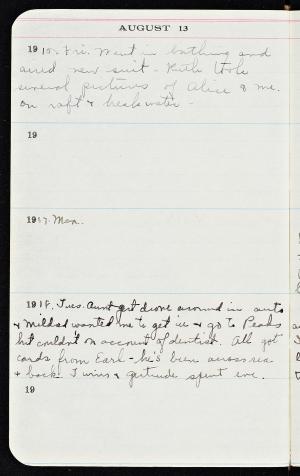 AUGUST 13
19 10. Fri. Went in bathing and
aired new suit - Ruth took
several pictures of Alice & me.
on raft & breakwater -
19
1917. Mon.
1918. Tues. Aunt get drove around in auto
& Mildred wanted me to get in & go to Peaks
but couldn't on account of dentist. All got
cards from Earl - he's been across sea
& back. Twins & Gertrude spent eve.
19